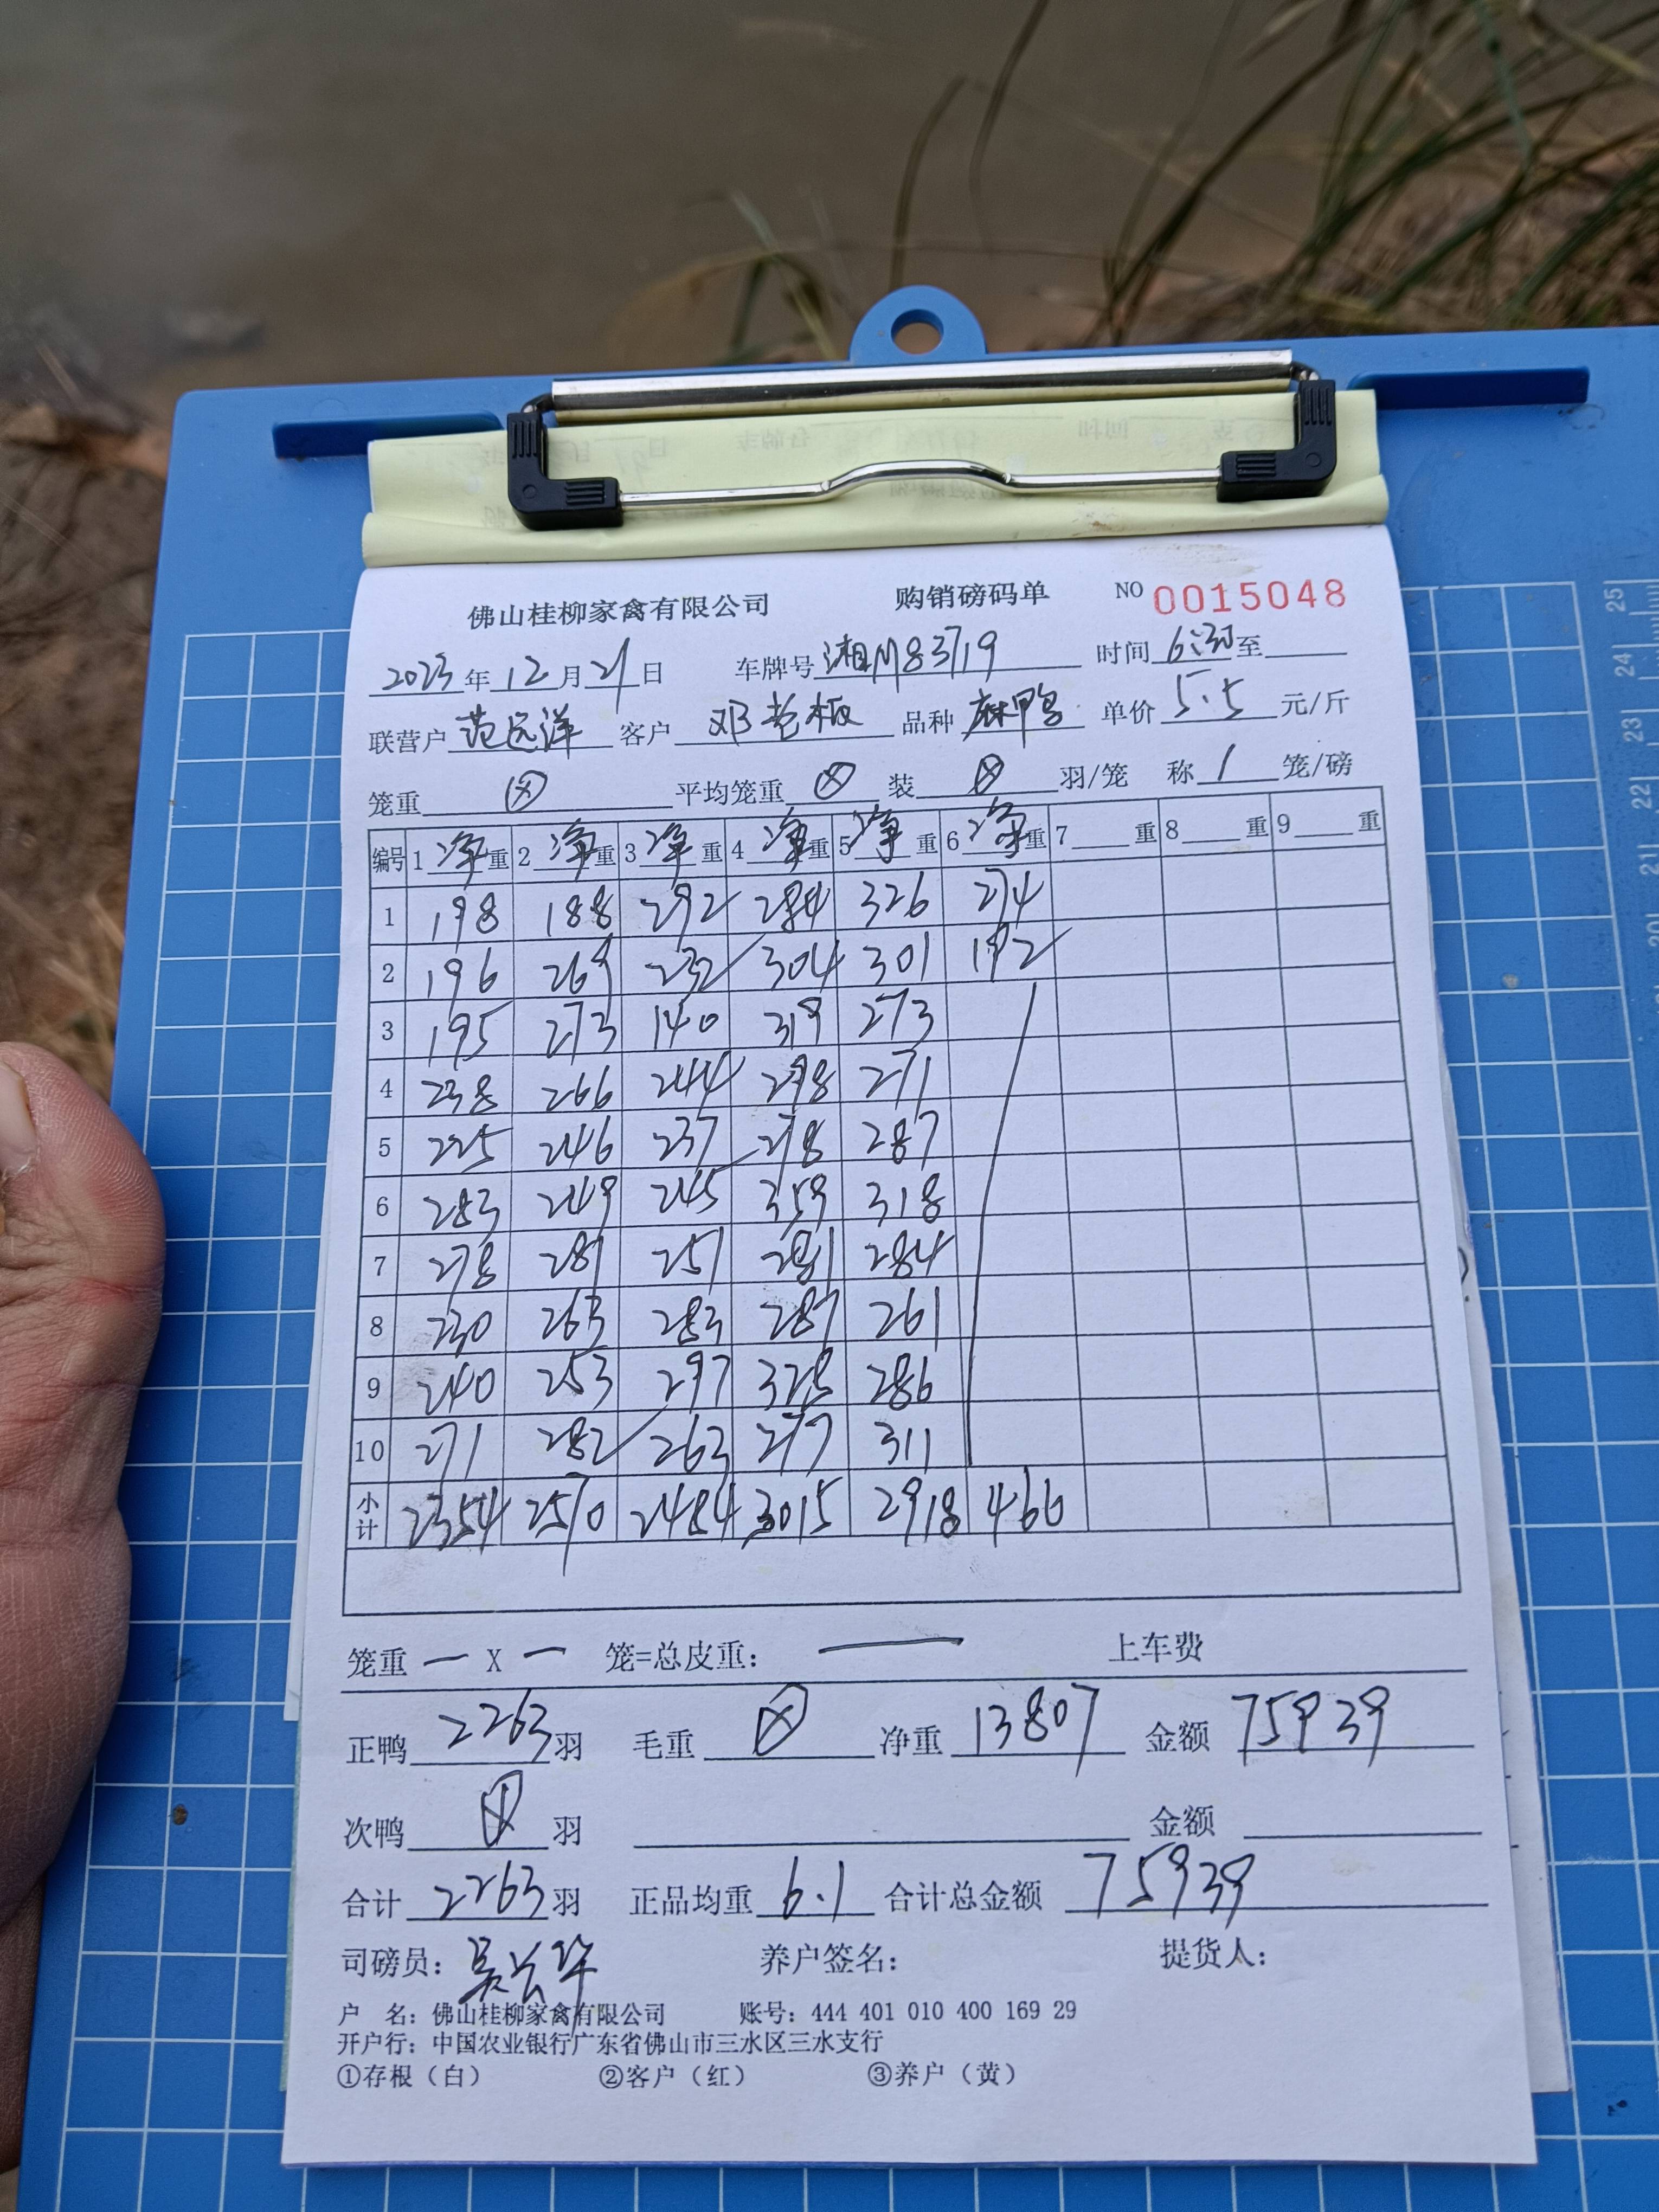 佛山桂柳家禽有限公司 购销磅码单 NO 0015048
2023年12月21日 车牌号湘M83719 时间6:30至
联营户 范远洋 客户 邓老板 品种 麻鸭 单价 5.5 元/斤
笼重 ⊗ 平均笼重 ⊗ 装 ⊗ 羽/笼 称 1 笼/磅
编号 1 净重 2 净重 3 净重 4 净重 5 净重 6 净重 7 重 8 重 9 重
1 198 188 292 284 326 274
2 196 269 232 304 301 192
3 195 273 140 319 273
4 238 266 244 298 271
5 225 246 237 278 287
6 283 249 245 359 318
7 278 281 251 281 284
8 230 263 283 287 261
9 240 253 297 328 286
10 271 282 263 277 311
小计 2354 2570 2484 3015 2918 466
笼重 — X — 笼=总皮重: — 上车费
正鸭 2263 羽 毛重 ⊗ 净重 13807 金额 75939
次鸭 ⊗ 羽 金额
合计 2263 羽 正品均重 6.1 合计总金额 75939
司磅员: 吴 华 养户签名: 提货人:
户 名: 佛山桂柳家禽有限公司 账号: 444 401 010 400 169 29
开户行: 中国农业银行广东省佛山市三水区三水支行
①存根（白） ②客户（红） ③养户（黄）
25
24
23
22
21
20